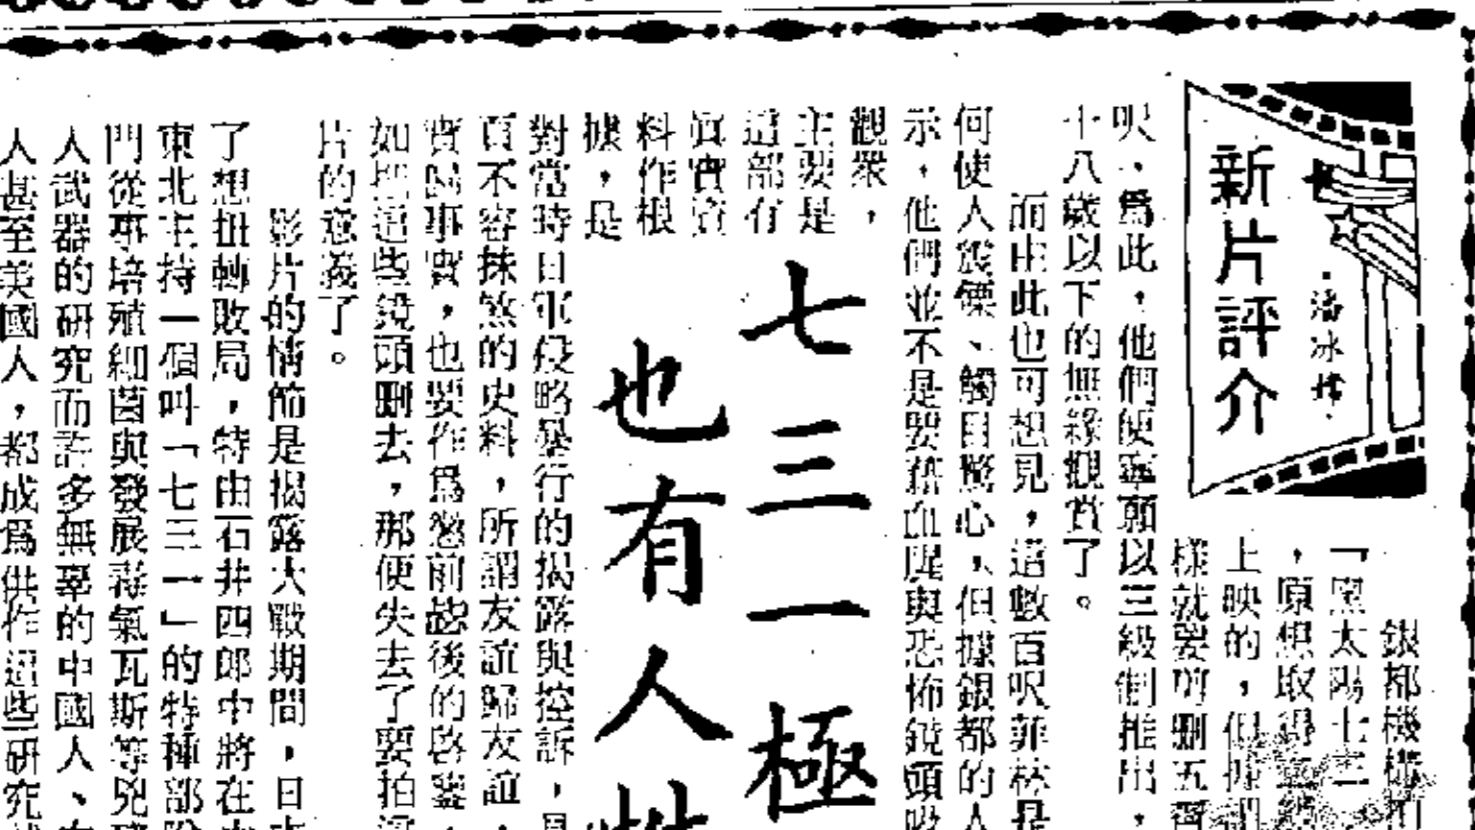 新片評介
潘冰
七三一極
也有人性
銀都機構
「黑太陽七三
，原想取得
上映的，但據
樣就要剪刪五
呎、爲此，他們便寧願以三級制推出，
十八歲以下的無緣觀賞了。
而由此也可想見，這數百呎菲林是
何使人震慄、觸目驚心，但據銀都的人
示，他們並不是要藉血腥與恐怖鏡頭吸
觀衆，
主要是
這部有
眞實資
料作根
據，是
對當時日軍侵略暴行的揭露與控訴，是
頁不容抹煞的史料，所謂友誼歸友誼，
實歸事實，也要作爲懲前毖後的啓鑒，
如把這些鏡頭刪去，那便失去了要拍
片的意義了。
影片的情節是揭露大戰期間，日
了想扭轉敗局，特由石井四郎中將在
東北主持一個叫「七三一」的特種部
門從事培殖細菌與發展毒氣瓦斯等
人武器的研究而許多無辜的中國人、
人甚至美國人，都成爲供作這些研究